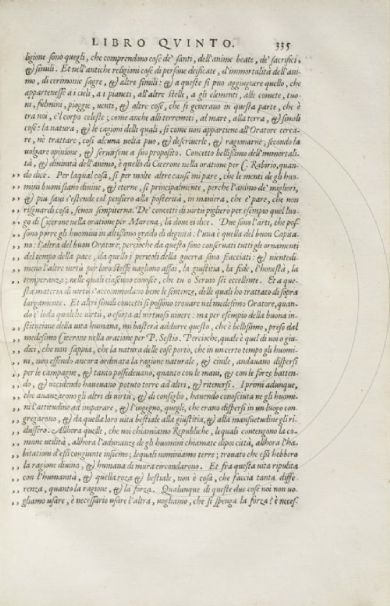 LIBRO QVINTO. 335
ligione sono quegli, che comprendono cose de' santi, dell'anime beate, de' sacrifici,
& simili. Et nell'antiche religioni cose di persone deificate, d'immortalità dell'ani-
mo, di cerimonie sagre, & altre simili: & a queste si può aggiugnere quello, che
appartenesse a i cieli, a i pianeti, all'altre stelle, a gli elementi, alle comete, tuo-
ni, fulmini, pioggie, venti, & altre cose, che si generano in questa parte, che è
tra noi, e'l corpo celeste; come anche alli terremoti, al mare, alla terra, & simili
cose: la natura, & le cagioni delli quali, si come non appartiene all'Oratore cerca-
re, nè trattare, così alcuna volta può, & descriverle, & ragionarne, secondo la
volgare opinione, & servirsene a suo proposito. Concetto bellissimo dell'immortali-
tà, & divinità dell'animo, è quello di Cicerone nella oratione per C. Rabirio, quan-
do dice. Per laqual cosa, si per molte altre cause mi pare, che le menti de gli huo-
mini buoni siano divine, & eterne, sì principalmente, perche l'animo de' migliori,
& più savi s'estende col pensiero alla posterità, in maniera, che e' pare, che non
risguardi cosa, se non sempiterna. De' concetti di virtù piglisi per esempio quel luo-
go di Cicerone nella oratione per Murena, là dove ei dice. Due sono l'arti, che pos-
sono porre gli huomini in altissimo grado di dignità: l'una è quella del buon Capita-
no: l'altra del buon Oratore; percioche da questa sono conservati tutti gli ornamenti
del tempo della pace, da quella i pericoli della guerra sono scacciati; & niente di-
meno l'altre virtù per loro stesse vagliono assai, la giustitia, la fede, l'honestà, la
temperanza; nelle quali ciascuno conosce, che tu o Servio sei eccellente. Et a que-
sta materia di virtù s'accommodano bene le sentenze, delle quali ho trattato di sopra
largamente. Et altri simili concetti si possono trovare nel medesimo Oratore, quan-
do e' loda qualche virtù, o esorta al virtuosi vivere: ma per esempio della buona in-
stitutione della vita humana, mi basterà addurre questo, che è bellissimo, preso dal
medesimo Cicerone nella oratione per P. Sestio. Percioche, quale è quel di voi o giu-
dici, che non sappia, che la natura delle cose portò, che in un certo tempo gli huomi-
ni, non essendo ancora ordinata la ragione naturale, & civile, andavano dispersi
per le campagne, & tanto possedevano, quanto con le mani, & con le forze batten-
do, & uccidendo havevano potuto torre ad altri, & ritenersi. I primi adunque,
che avanzarono gli altri di virtù, & di consiglio, havendo conosciuta ne gli huomi-
ni l'attitudine ad imparare, & l'ingegno, quegli, che erano dispersi in un luogo con-
gregarono, & da quella loro vita bestiale alla giustitia, & alla mansuetudine gli ri-
dussero. Allhora quelle, che noi chiamiamo Republiche, lequali contengono la co-
mune utilità, allhora l'adunanze de gli huomini chiamate dipoi città, allhora l'ha-
bitationi d'essi congiunte insieme; lequali nominiamo terre; trovato che essi hebbero
la ragione divina, & humana di mura circondarono. Et fra questa vita ripulita
con l'humanità, & quella roza & bestiale, non è cosa, che faccia tanta diffe-
renza, quanto la ragione, & la forza. Qualunque di queste due cose noi non vo-
gliamo usare, è necessario usare l'altra, vogliamo, che si spenga la forza? è necess.